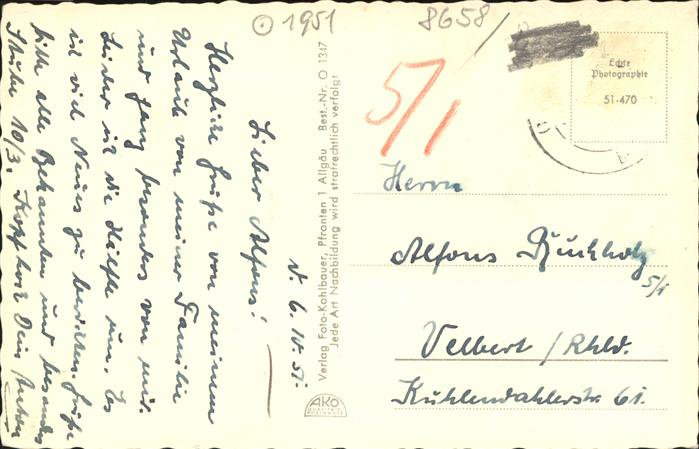 1951
8658
d. 6. IV. 51
Lieber Alfons!
Herzliche Grüße von meinem
Urlaub von meiner Familie
und ganz besonders von mir.
Leider ist die Hälfte um. Es
ist viel Neues zu berichten. Grüße
bitte alle Bekannten und besonders
10/3. Dein Anton
Verlag Foto-Kohlbauer, Pfronten 1 Allgäu Best.-Nr. O 1347
Jede Art Nachbildung wird strafrechtlich verfolgt
AKO
5/1
Echte
Photographie
51-470
Herrn
Alfons Buchholz
5/1
Velbert / Rhld.
Kuhlendahlerstr. 61.